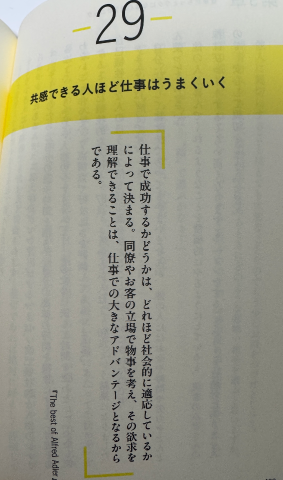 29
共感できる人ほど仕事はうまくいく
仕事で成功するかどうかは、どれほど社会的に適応しているか
によって決まる。同僚やお客の立場で物事を考え、その欲求を
理解できることは、仕事での大きなアドバンテージとなるから
である。
『The best of Alfred Adler